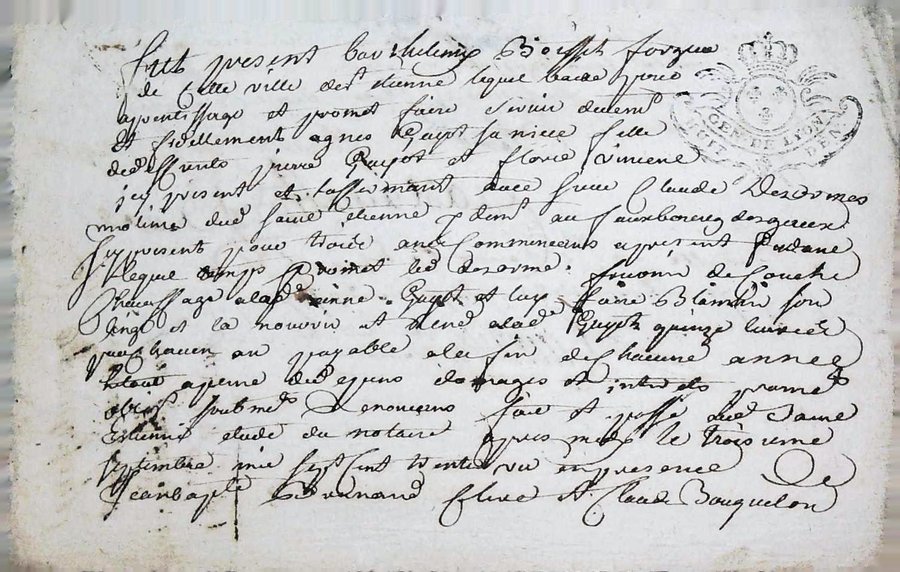 fut present Barthelemy Boisset forgeur
de cette ville de st etienne lequel baille pour
aprentissage et promet faire servir deuem^t
et fidellement agnes Guyot sa niece fille
de deffunts pierre Guyot et florie vincent
icy present et avec sieur Claude Desormes
molinier dud saint etienne y dem^t au fauxbourg
present pour trois ans Commencans a present
lequel temps promet led desorme fournir de Couche
Chauffage a lad Guyot et luy faire Blanchir son
linge et la nourrir et a lad^e Guyot quinze livres
par chacun an payable a la fin de Chacune année
le tout a peine de tous depens domages et interets
oblig^s soubmis^s Renoncions fait et passé aud Saint
Estienne etude du notaire apres midy le troisieme
septembre mil sept Cent trente un en presence de
Jean baptiste Bernand Clerc et Claude Bouquelon
GEN DE LYON
HUIT DEN